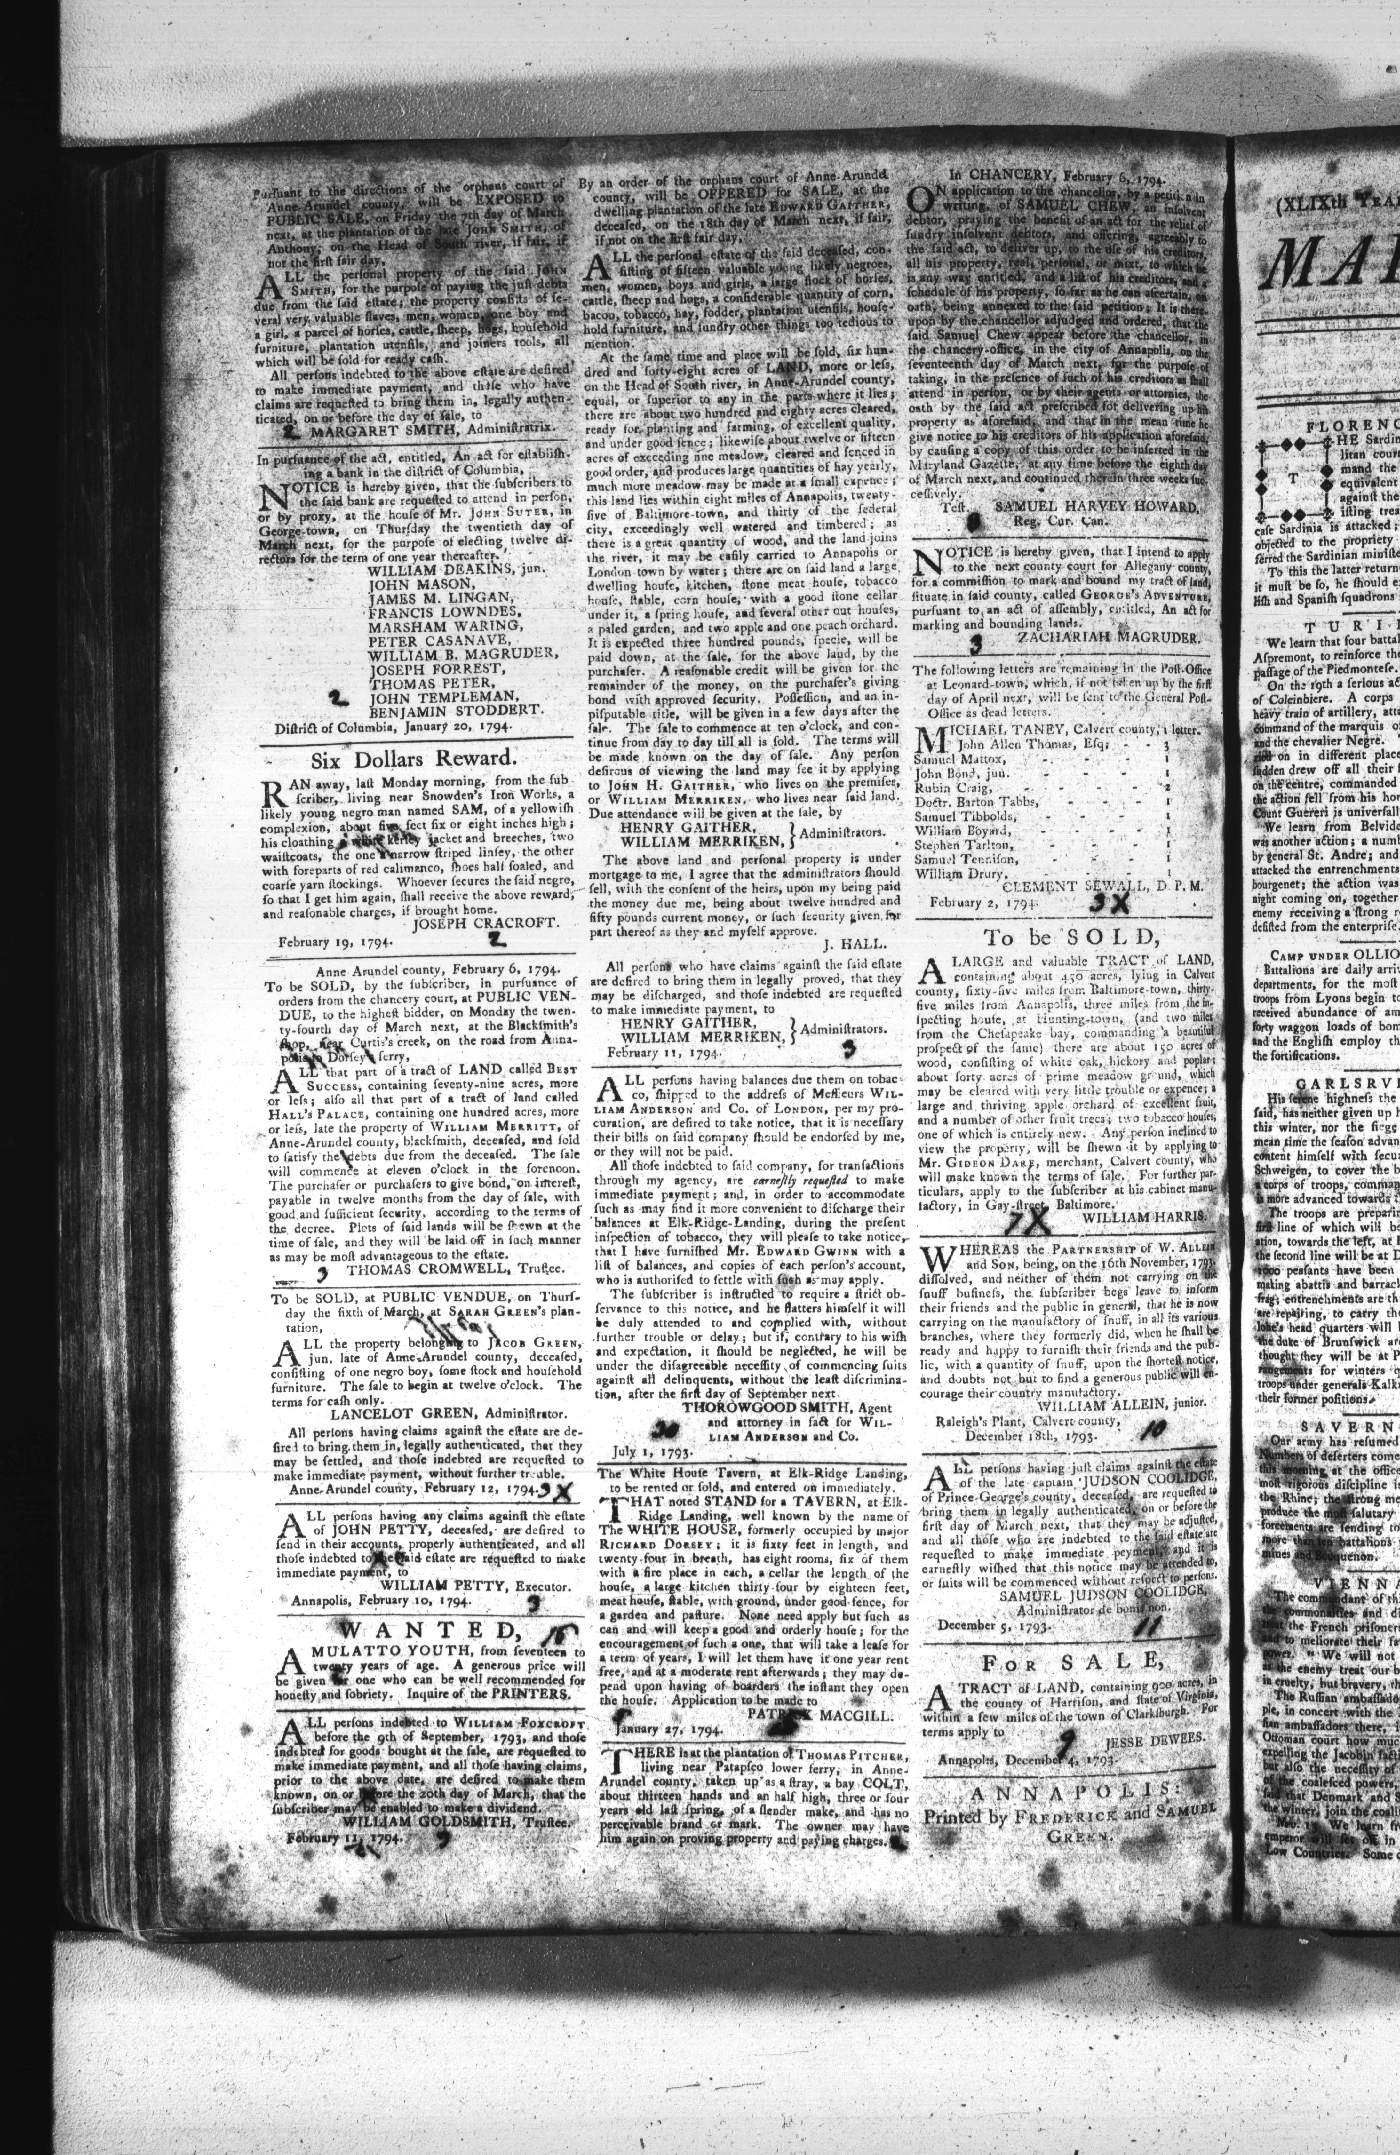 Pursuant to the directions of the orphans court of
Anne-Arundel county, will be EXPOSED to
PUBLIC SALE, on Friday the 7th day of March
next, at the plantation of the late JOHN SMITH, of
Anthony, on the Head of South river, if fair, if
not the first fair day,
ALL the personal property of the said JOHN
SMITH, for the purpose of paying the just debts
due from the said estate; the property consists of se-
veral very valuable slaves, men, women, one boy and
a girl, a parcel of horses, cattle, sheep, hogs, household
furniture, plantation utensils, and joiners tools, all
which will be sold for ready cash.
All persons indebted to the above estate are desired
to make immediate payment, and those who have
claims are requested to bring them in, legally authen-
ticated, on or before the day of sale, to
2 MARGARET SMITH, Administratrix.
In pursuance of the act, entitled, An act for establish-
ing a bank in the district of Columbia,
NOTICE is hereby given, that the subscribers to
the said bank are requested to attend in person,
or by proxy, at the house of Mr. JOHN SUTER, in
George-town, on Thursday the twentieth day of
March next, for the purpose of electing twelve di-
rectors for the term of one year thereafter.
WILLIAM DEAKINS, jun.
JOHN MASON,
JAMES M. LINGAN,
FRANCIS LOWNDES,
MARSHAM WARING,
PETER CASANAVE,
WILLIAM B. MAGRUDER,
JOSEPH FORREST,
THOMAS PETER,
2 JOHN TEMPLEMAN,
BENJAMIN STODDERT.
District of Columbia, January 20, 1794.
Six Dollars Reward.
RAN away, last Monday morning, from the sub
scriber, living near Snowden's Iron Works, a
likely young negro man named SAM, of a yellowish
complexion, about five feet six or eight inches high;
his cloathing a white kersey jacket and breeches, two
waistcoats, the one a narrow striped linsey, the other
with foreparts of red calimanco, shoes half soaled, and
coarse yarn stockings. Whoever secures the said negro,
so that I get him again, shall receive the above reward,
and reasonable charges, if brought home.
JOSEPH CRACROFT.
February 19, 1794. 2
Anne Arundel county, February 6, 1794.
To be SOLD, by the subscriber, in pursuance of
orders from the chancery court, at PUBLIC VEN-
DUE, to the highest bidder, on Monday the twen-
ty-fourth day of March next, at the Blacksmith's
shop, near Curtis's creek, on the road from Anna-
polis to Dorsey's ferry,
ALL that part of a tract of LAND called BEST
SUCCESS, containing seventy-nine acres, more
or less; also all that part of a tract of land called
HALL'S PALACE, containing one hundred acres, more
or less, late the property of WILLIAM MERRITT, of
Anne-Arundel county, blacksmith, deceased, and sold
to satisfy the debts due from the deceased. The sale
will commence at eleven o'clock in the forenoon.
The purchaser or purchasers to give bond, on interest,
payable in twelve months from the day of sale, with
good and sufficient security, according to the terms of
the decree. Plots of said lands will be shewn at the
time of sale, and they will be laid off in such manner
as may be most advantageous to the estate.
3 THOMAS CROMWELL, Trustee.
To be SOLD, at PUBLIC VENDUE, on Thurs-
day the sixth of March, at SARAH GREEN's plan-
tation,
ALL the property belonging to JACOB GREEN,
jun. late of Anne-Arundel county, deceased,
consisting of one negro boy, some stock and household
furniture. The sale to begin at twelve o'clock. The
terms for cash only.
LANCELOT GREEN, Administrator.
All persons having claims against the estate are de-
sired to bring them in, legally authenticated, that they
may be settled, and those indebted are requested to
make immediate payment, without further trouble.
Anne-Arundel county, February 12, 1794. 3X
ALL persons having any claims against the estate
of JOHN PETTY, deceased, are desired to
send in their accounts, properly authenticated, and all
those indebted to the said estate are requested to make
immediate payment, to
WILLIAM PETTY, Executor.
Annapolis, February 10, 1794. 3
WANTED,
A MULATTO YOUTH, from seventeen to
twenty years of age. A generous price will
be given for one who can be well recommended for
honesty and sobriety. Inquire of the PRINTERS.
ALL persons indebted to WILLIAM FOXCROFT
before the 9th of September, 1793, and those
indebted for goods bought at the sale, are requested to
make immediate payment, and all those having claims,
prior to the above date, are desired to make them
known, on or before the 20th day of March, that the
subscriber may be enabled to make a dividend.
WILLIAM GOLDSMITH, Trustee.
February 11, 1794. 3
By an order of the orphans court of Anne-Arundel
county, will be OFFERED for SALE, at the
dwelling plantation of the late EDWARD GAITHER,
deceased, on the 18th day of March next, if fair,
if not on the first fair day,
ALL the personal estate of the said deceased, con-
sisting of fifteen valuable young likely negroes,
men, women, boys and girls, a large stock of horses,
cattle, sheep and hogs, a considerable quantity of corn,
bacon, tobacco, hay, fodder, plantation utensils, house-
hold furniture, and sundry other things too tedious to
mention.
At the same time and place will be sold, six hun-
dred and forty-eight acres of LAND, more or less,
on the Head of South river, in Anne-Arundel county,
equal, or superior to any in the parts where it lies;
there are about two hundred and eighty acres cleared,
ready for planting and farming, of excellent quality,
and under good fence; likewise about twelve or fifteen
acres of exceeding fine meadow, cleared and fenced in
good order, and produces large quantities of hay yearly,
much more meadow may be made at a small expence;
this land lies within eight miles of Annapolis, twenty-
five of Baltimore-town, and thirty of the federal
city, exceedingly well watered and timbered; as
there is a great quantity of wood, and the land joins
the river, it may be easily carried to Annapolis or
London-town by water; there are on said land a large
dwelling house, kitchen, stone meat house, tobacco
house, stable, corn house, with a good stone cellar
under it, a spring house, and several other out houses,
a paled garden, and two apple and one peach orchard.
It is expected three hundred pounds, specie, will be
paid down, at the sale, for the above land, by the
purchaser. A reasonable credit will be given for the
remainder of the money, on the purchaser's giving
bond with approved security. Possession, and an in-
pisputable title, will be given in a few days after the
sale. The sale to commence at ten o'clock, and con-
tinue from day to day till all is sold. The terms will
be made known on the day of sale. Any person
desirous of viewing the land may see it by applying
to JOHN H. GAITHER, who lives on the premises,
or WILLIAM MERRIKEN, who lives near said land.
Due attendance will be given at the sale, by
HENRY GAITHER,
WILLIAM MERRIKEN, } Administrators.
The above land and personal property is under
mortgage to me, I agree that the administrators should
sell, with the consent of the heirs, upon my being paid
the money due me, being about twelve hundred and
fifty pounds current money, or such security given for
part thereof as they and myself approve.
J. HALL.
All persons who have claims against the said estate
are desired to bring them in legally proved, that they
may be discharged, and those indebted are requested
to make immediate payment, to
HENRY GAITHER,
WILLIAM MERRIKEN, } Administrators.
February 11, 1794. 3
ALL persons having balances due them on tobac-
co, shipped to the address of Messieurs WIL-
LIAM ANDERSON and Co. of LONDON, per my pro-
curation, are desired to take notice, that it is necessary
their bills on said company should be endorsed by me,
or they will not be paid.
All those indebted to said company, for transactions
through my agency, are earnestly requested to make
immediate payment; and, in order to accommodate
such as may find it more convenient to discharge their
balances at Elk-Ridge-Landing, during the present
inspection of tobacco, they will please to take notice,
that I have furnished Mr. EDWARD GWINN with a
list of balances, and copies of each person's account,
who is authorised to settle with such as may apply.
The subscriber is instructed to require a strict ob-
servance to this notice, and he flatters himself it will
be duly attended to and complied with, without
further trouble or delay; but if, contrary to his wish
and expectation, it should be neglected, he will be
under the disagreeable necessity of commencing suits
against all delinquents, without the least discrimina-
tion, after the first day of September next.
THOROWGOOD SMITH, Agent
30 and attorney in fact for WIL-
LIAM ANDERSON and Co.
July 1, 1793.
The White House Tavern, at Elk-Ridge Landing,
to be rented or sold, and entered on immediately.
THAT noted STAND for a TAVERN, at Elk-
Ridge Landing, well known by the name of
The WHITE HOUSE, formerly occupied by major
RICHARD DORSEY; it is sixty feet in length, and
twenty-four in breath, has eight rooms, six of them
with a fire place in each, a cellar the length of the
house, a large kitchen thirty-four by eighteen feet,
meat house, stable, with ground, under good fence, for
a garden and pasture. None need apply but such as
can and will keep a good and orderly house; for the
encouragement of such a one, that will take a lease for
a term of years, I will let them have it one year rent
free, and at a moderate rent afterwards; they may de-
pend upon having of boarders the instant they open
the house. Application to be made to
PATRICK MACGILL.
January 27, 1794.
THERE is at the plantation of THOMAS PITCHER,
living near Patapsco lower ferry, in Anne-
Arundel county, taken up as a stray, a bay COLT,
about thirteen hands and an half high, three or four
years old last spring, of a slender make, and has no
perceivable brand or mark. The owner may have
him again on proving property and paying charges.
In CHANCERY, February 6, 1794.
ON application to the chancellor, by a petition in
writing, of SAMUEL CHEW, an insolvent
debtor, praying the benefit of an act for the relief of
sundry insolvent debtors, and offering, agreeably to
the said act, to deliver up, to the use of his creditors,
all his property, real, personal, or mixt, to which he
is any way entitled, and a list of his creditors, and a
schedule of his property, so far as he can ascertain, on
oath, being annexed to the said petition; It is there-
upon by the chancellor adjudged and ordered, that the
said Samuel Chew appear before the chancellor, in
the chancery-office, in the city of Annapolis, on the
seventeenth day of March next, for the purpose of
taking, in the presence of such of his creditors as shall
attend in person, or by their agents or attornies, the
oath by the said act prescribed for delivering up his
property as aforesaid, and that in the mean time he
give notice to his creditors of his application aforesaid,
by causing a copy of this order to be inserted in the
Maryland Gazette, at any time before the eighth day
of March next, and continued therein three weeks suc-
cessively.
Test. SAMUEL HARVEY HOWARD,
Reg. Cur. Can.
NOTICE is hereby given, that I intend to apply
to the next county court for Allegany county,
for a commission to mark and bound my tract of land,
situate in said county, called GEORGE'S ADVENTURE,
pursuant to an act of assembly, entitled, An act for
marking and bounding lands.
3 ZACHARIAH MAGRUDER.
The following letters are remaining in the Post-Office
at Leonard-town, which, if not taken up by the first
day of April next, will be sent to the General Post-
Office as dead letters.
MICHAEL TANEY, Calvert county, 1 letter.
John Allen Thomas, Esq; - - 3
Samuel Mattox, - - - 1
John Bond, jun. - - - 1
Rubin Craig, - - - 2
Doctr. Barton Tabbs, - - - 1
Samuel Tibbolds, - - - 1
William Boyard, - - - 1
Stephen Tarlton, - - - 1
Samuel Tennison, - - - 1
William Drury, - - - 1
CLEMENT SEWALL, D. P. M.
February 2, 1794. 3X
To be SOLD,
A LARGE and valuable TRACT of LAND,
containing about 450 acres, lying in Calvert
county, sixty-five miles from Baltimore-town, thirty-
five miles from Annapolis, three miles from the in-
specting house, at Hunting-town, (and two miles
from the Chesapeake bay, commanding a beautiful
prospect of the same) there are about 150 acres of
wood, consisting of white oak, hickory and poplar;
about forty acres of prime meadow ground, which
may be cleared with very little trouble or expence; a
large and thriving apple orchard of excellent fruit,
and a number of other fruit trees; two tobacco houses,
one of which is entirely new. Any person inclined to
view the property, will be shewn it by applying to
Mr. GIDEON DARE, merchant, Calvert county, who
will make known the terms of sale. For further par-
ticulars, apply to the subscriber at his cabinet manu-
factory, in Gay-street, Baltimore.
7X WILLIAM HARRIS.
WHEREAS the PARTNERSHIP of W. ALLEIN
and SON, being, on the 16th November, 1793,
dissolved, and neither of them not carrying on the
snuff business, the subscriber begs leave to inform
their friends and the public in general, that he is now
carrying on the manufactory of snuff, in all its various
branches, where they formerly did, when he shall be
ready and happy to furnish their friends and the pub-
lic, with a quantity of snuff, upon the shortest notice,
and doubts not but to find a generous public will en-
courage their country manufactory.
WILLIAM ALLEIN, junior.
Raleigh's Plant, Calvert county,
December 18th, 1793. 10
ALL persons having just claims against the estate
of the late captain JUDSON COOLIDGE,
of Prince-George's county, deceased, are requested to
bring them in legally authenticated, on or before the
first day of March next, that they may be adjusted,
and all those who are indebted to the said estate are
requested to make immediate payment, and it is
earnestly wished that this notice may be attended to,
or suits will be commenced without respect to persons.
SAMUEL JUDSON COOLIDGE,
Administrator de bonis non.
December 5, 1793. 11
FOR SALE,
A TRACT of LAND, containing 900 acres, in
the county of Harrison, and state of Virginia,
within a few miles of the town of Clarksburgh. For
terms apply to
9 JESSE DEWEES.
Annapolis, December 4, 1793.
ANNAPOLIS:
Printed by FREDERICK and SAMUEL
GREEN.
(XLIXth YEAR
MAR
FLORENC
THE Sardin
litan coun
mand the
equivalent
against the
isting trea
case Sardinia is attacked;
objected to the propriety
ferred the Sardinian ministe
To this the latter return
it must be so, he should e
lish and Spanish squadrons
TURI
We learn that four battal
Aspremont, to reinforce the
passage of the Piedmontese.
On the 19th a serious ac
of Coleinbiere. A corps
heavy train of artillery, atta
command of the marquis o
and the chevalier Negre.
on in different place
sudden drew off all their
on the centre, commanded
the action fell from his hor
Count Guereri is universall
We learn from Belvide
was another action; a numb
by general St. Andre; and
attacked the entrenchments
bourgenet; the action was
night coming on, together
enemy receiving a strong r
desisted from the enterprise.
CAMP UNDER OLLIO
Battalions are daily arriv
departments, for the most
troops from Lyons begin t
received abundance of am
forty waggon loads of bom
and the English employ th
the fortifications.
GARLSRV
His serene highness the
said, has neither given up h
this winter, nor the siege
mean time the season advan
content himself with secu
Schweigen, to cover the b
a corps of troops, comman
is more advanced towards
The troops are preparin
first line of which will b
ation, towards the left, at
the second line will be at D
1000 peasants have been
making abattis and barrac
frag; entrenchments are th
are repairing, to carry th
head quarters will
the duke of Brunswick are
thought they will be at P
rangements for winters q
troops under generals Kalk
their former positions.
SAVERN
Our army has resumed
Numbers of deserters come
this morning at the office
most rigorous discipline is
the Rhine; the strong
produce the most salutary
forcements are sending to
more than ten battalions
mines and
VIENN
The commandant of th
the commonalties and di
that the French prisoners
and to meliorate their
power. "We will not
as the enemy treat our
in cruelty, but bravery, th
The Russian ambassad
ple, in concert with the
sian ambassadors there,
Ottoman court how much
expelling the Jacobin
but also the necessity of
of the coalesced powers,
said that Denmark and S
the winter, join the coali
We learn
emperor will set off in
Low Countries. Some